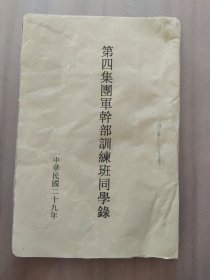 第四集團軍幹部訓練班同學錄
中華民國二十九年